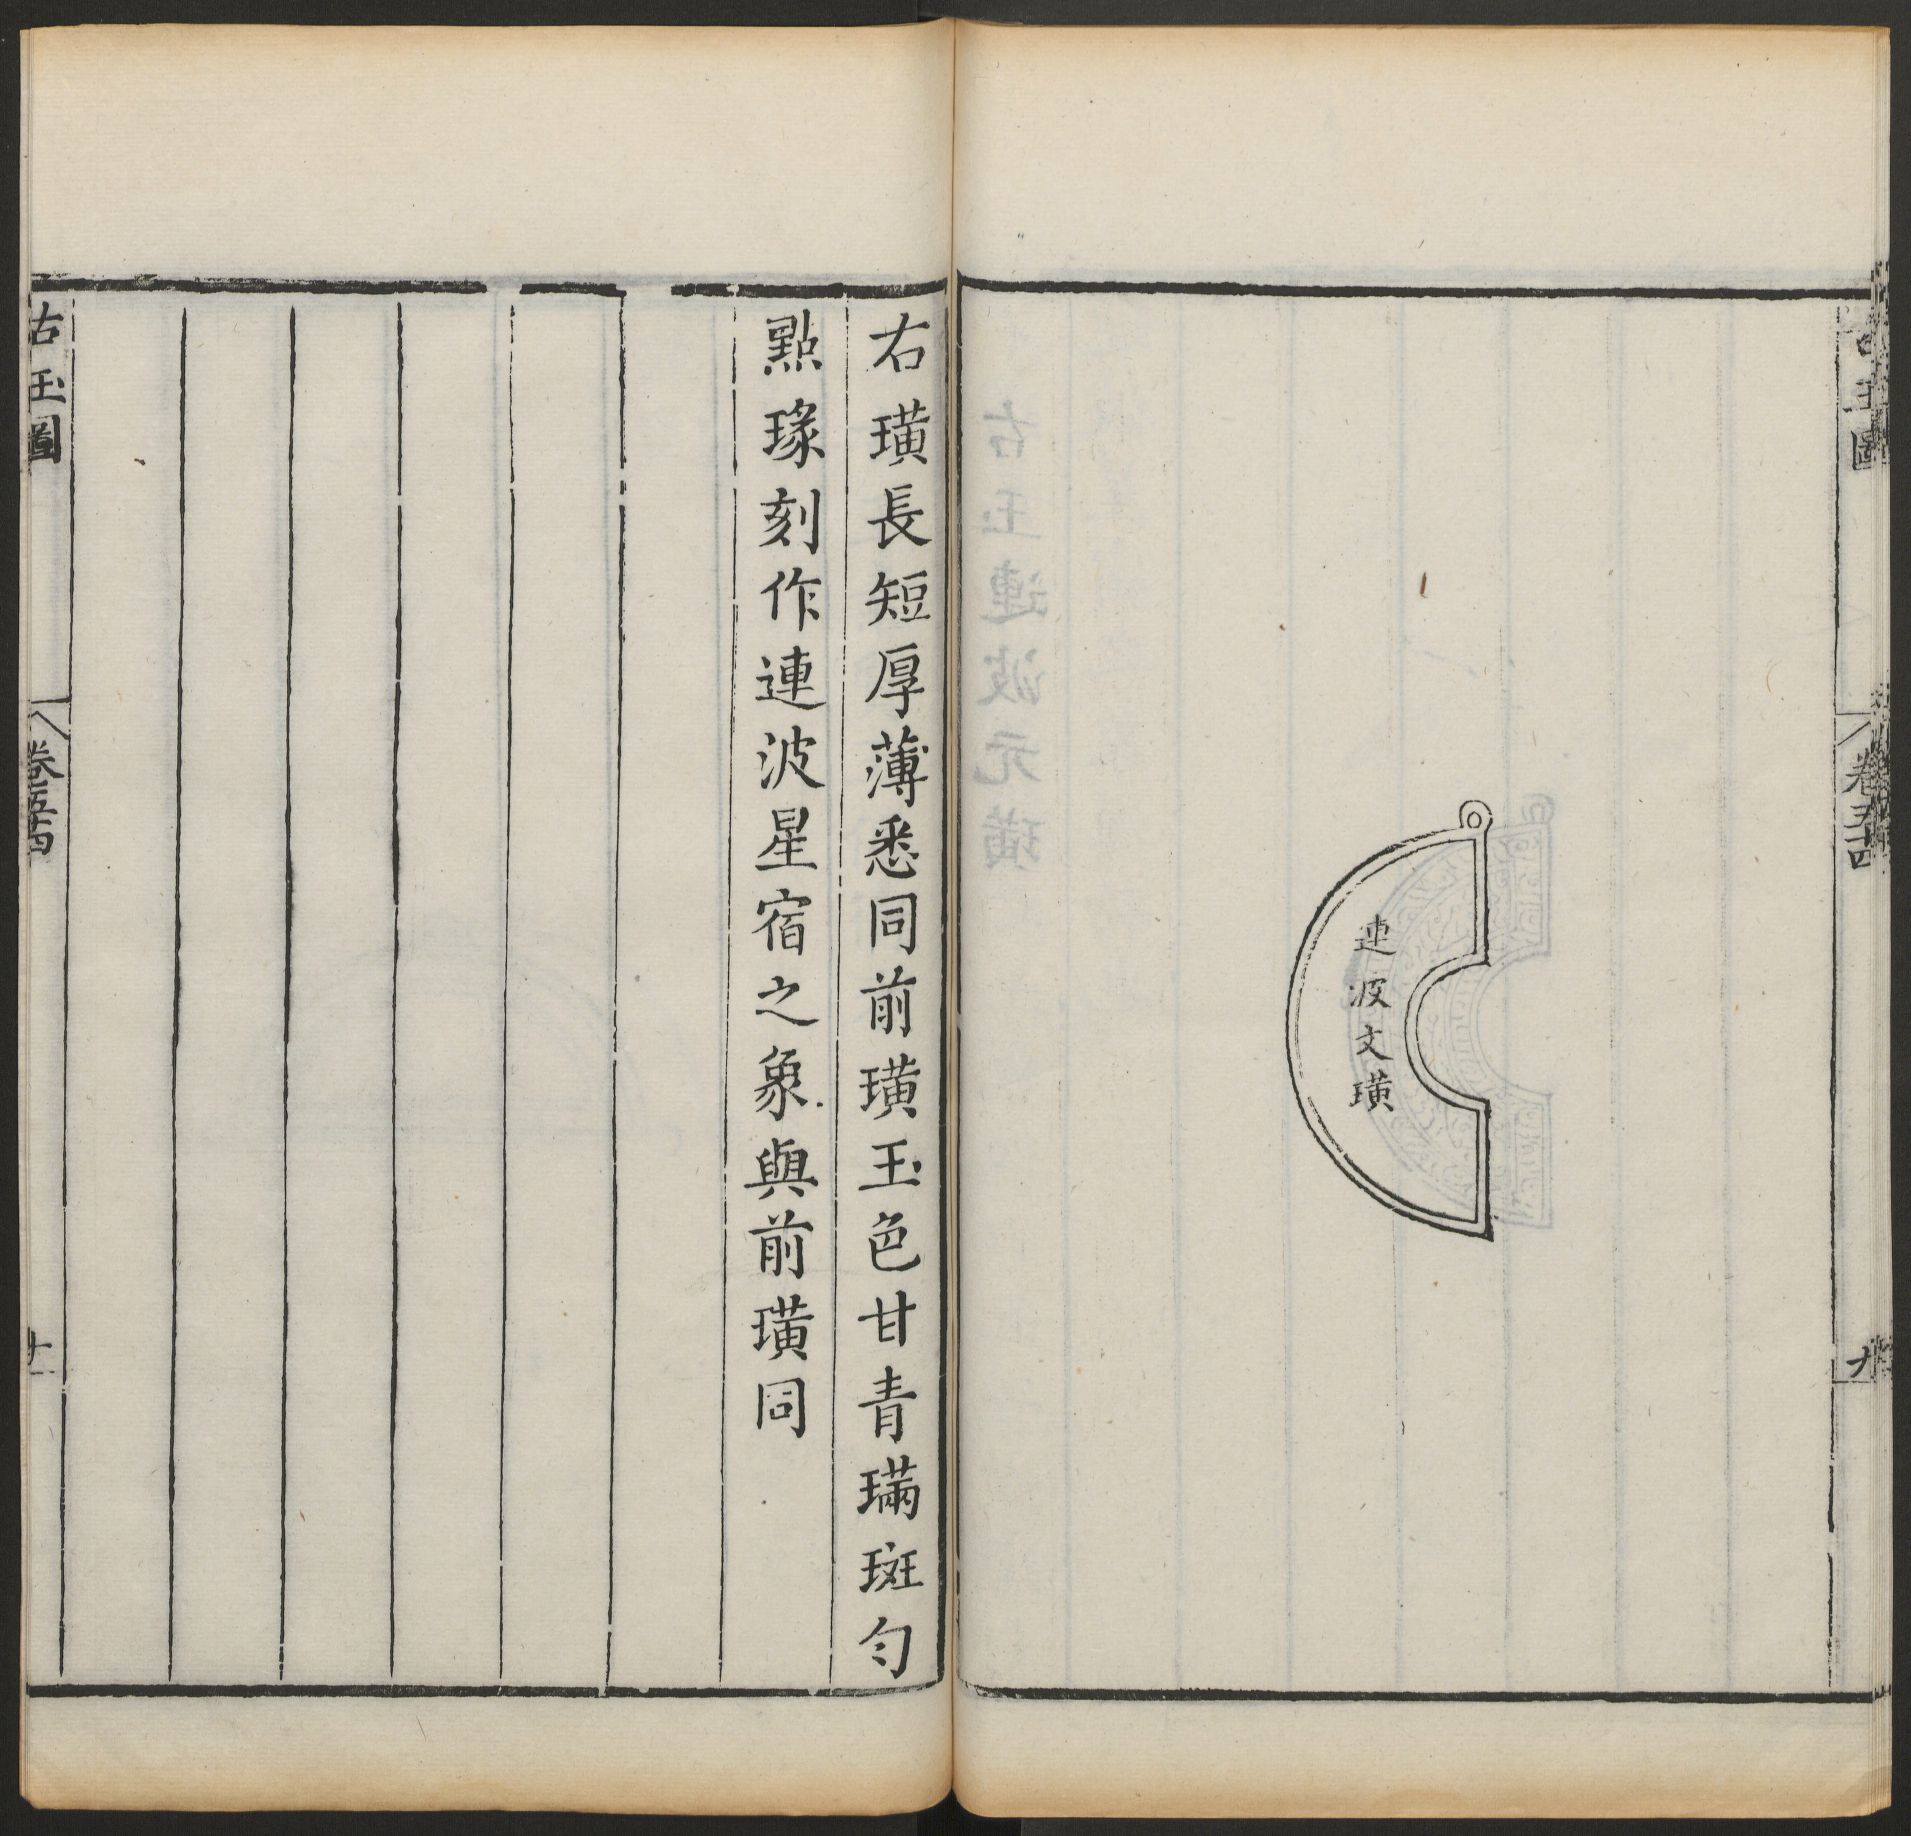 古玉圖
卷五十四
九
連波文璜
右璜長短厚薄悉同前璜玉色甘青璊斑勻
點瑑刻作連波星宿之象與前璜同
古玉圖
卷五十四
十